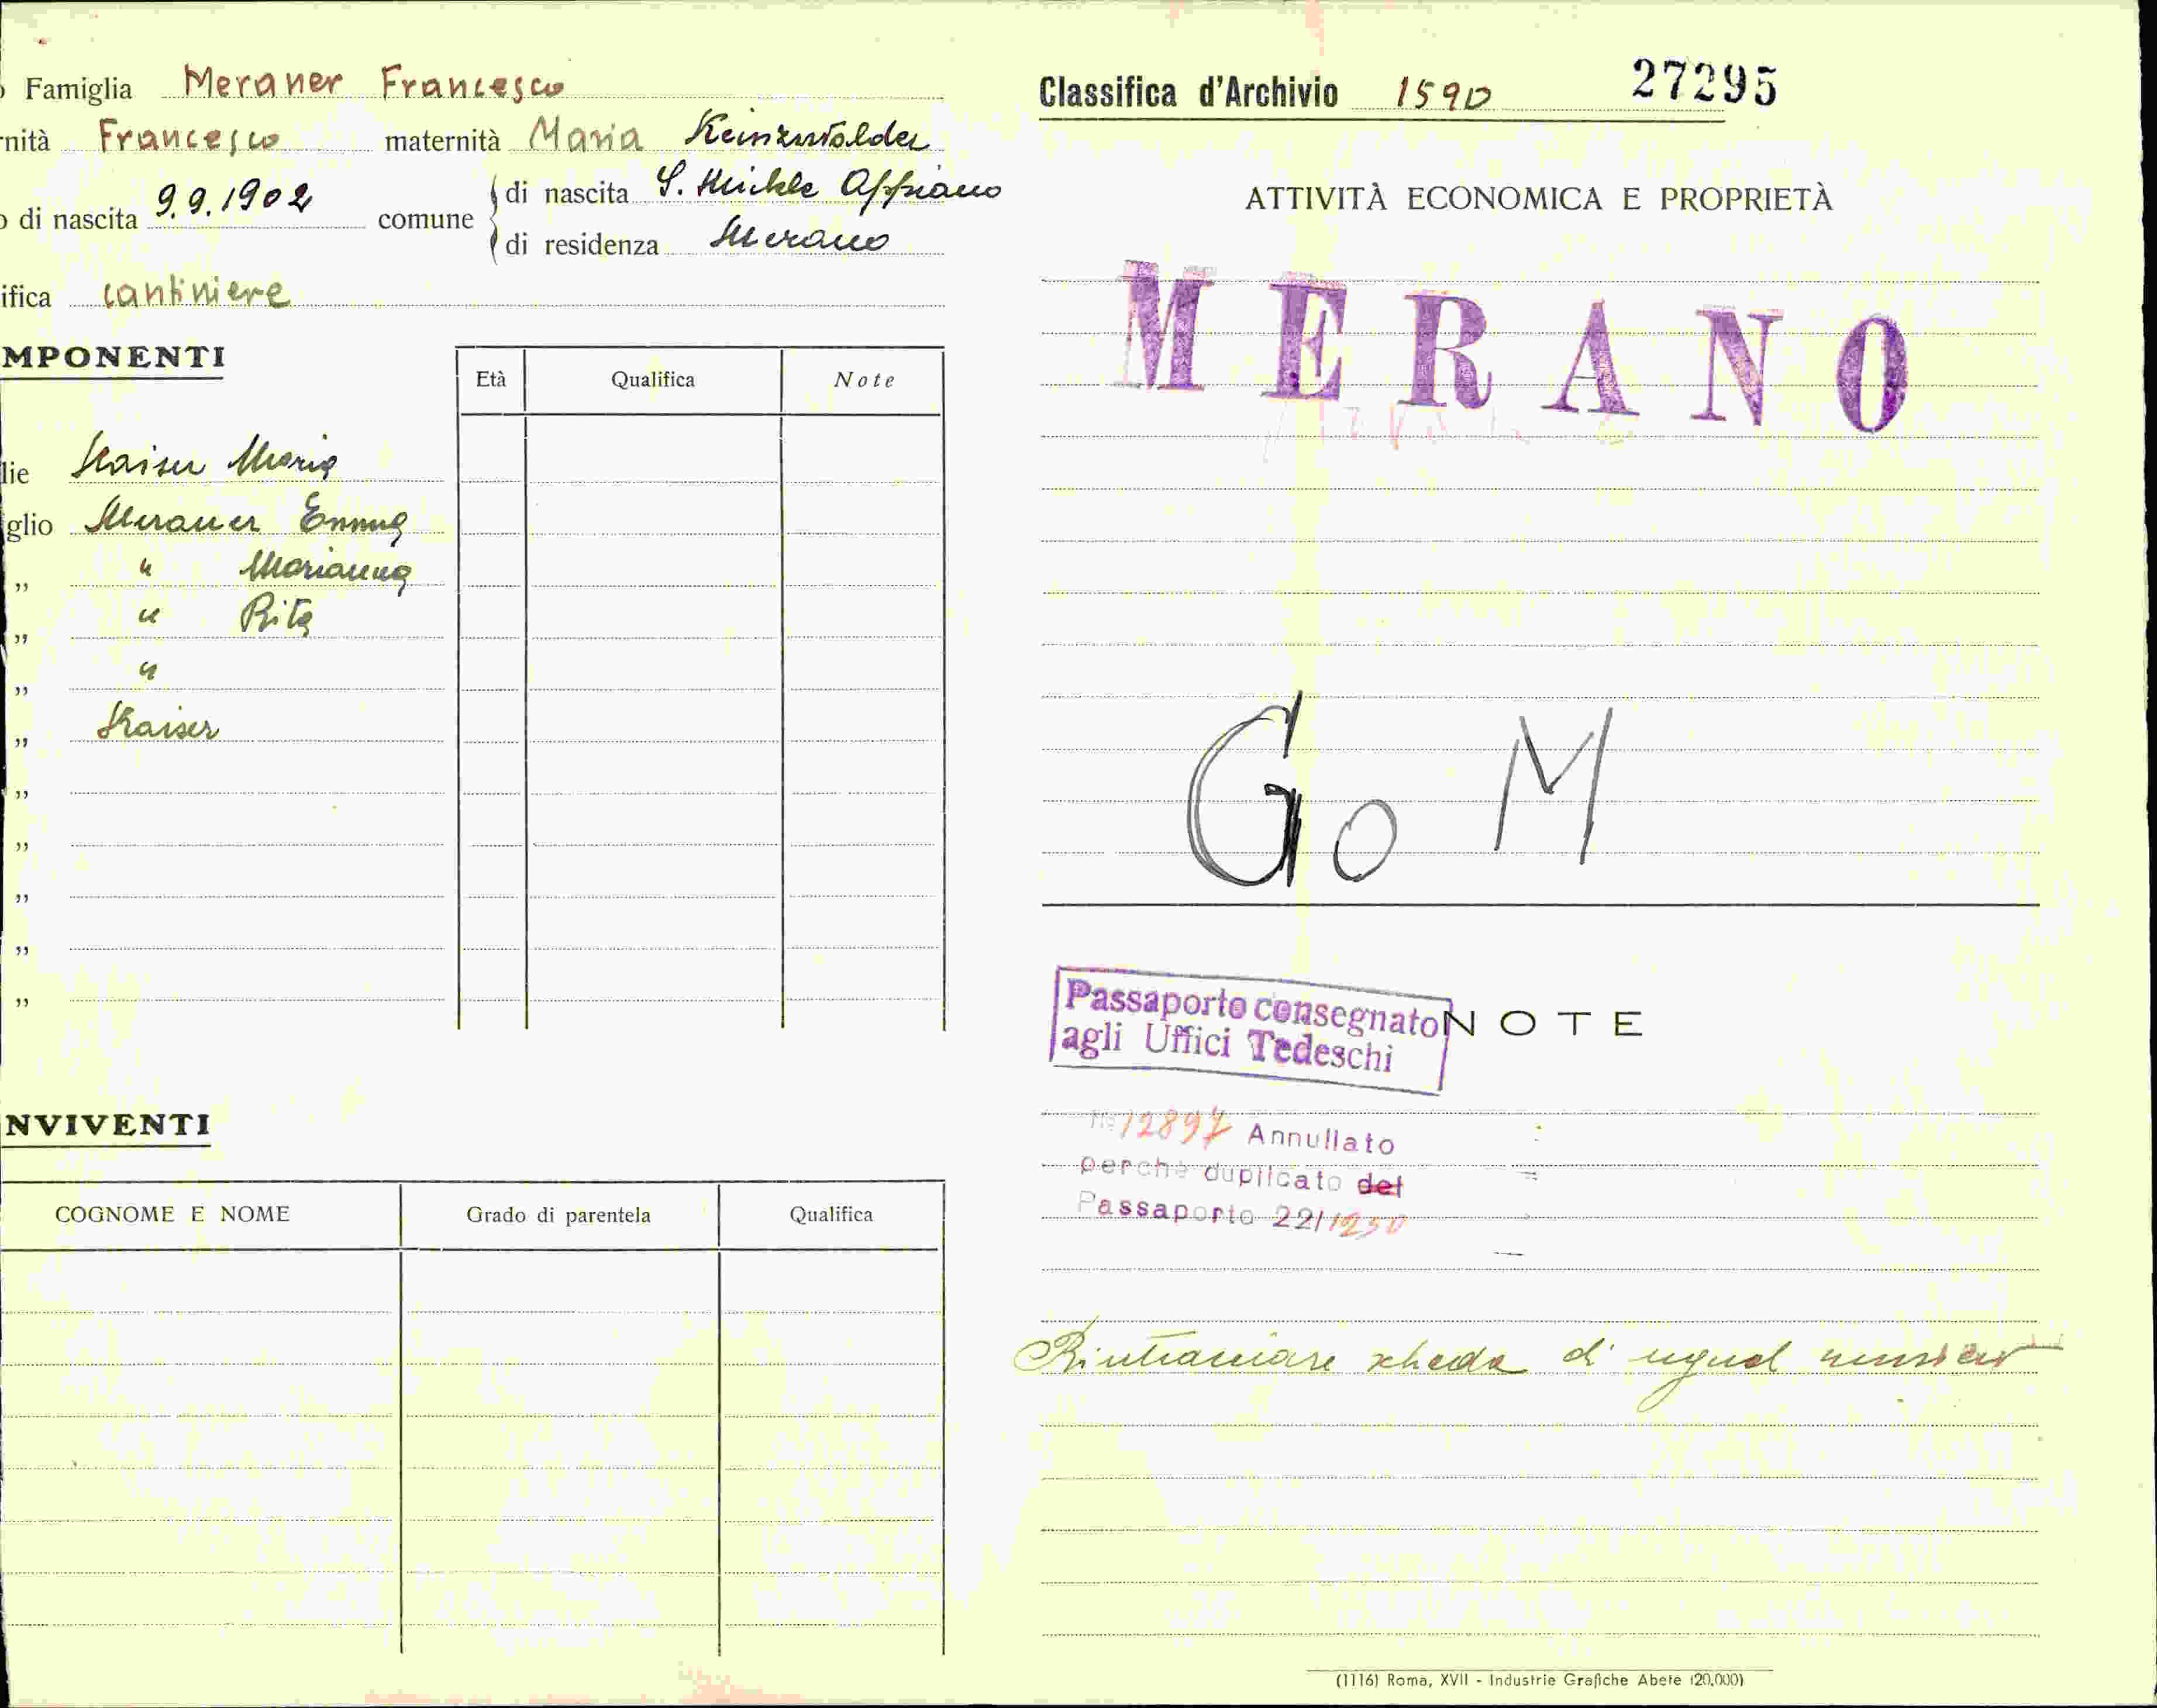 Famiglia Meraner Francesco
nità Francesco maternità Maria
di nascita 9.9.1902 comune di nascita S. Michele Appiano
di residenza Merano
ifica cantiniere
MPONENTI
Età Qualifica Note
lie Kaiser Maria
glio Meraner Emma
„ " Marianna
„ " Rita
„ "
„ Kaiser
„
„
„
„
„
NVIVENTI
COGNOME E NOME Grado di parentela Qualifica
Classifica d'Archivio 1590 27295
ATTIVITÀ ECONOMICA E PROPRIETÀ
MERANO
Go M
Passaporto consegnato
agli Uffici Tedeschi
NOTE
No 12897 Annullato
perchè duplicato del
Passaporto 22/1250
Rintracciare scheda di ugual numero
(1116) Roma, XVII - Industrie Grafiche Abete (20.000)